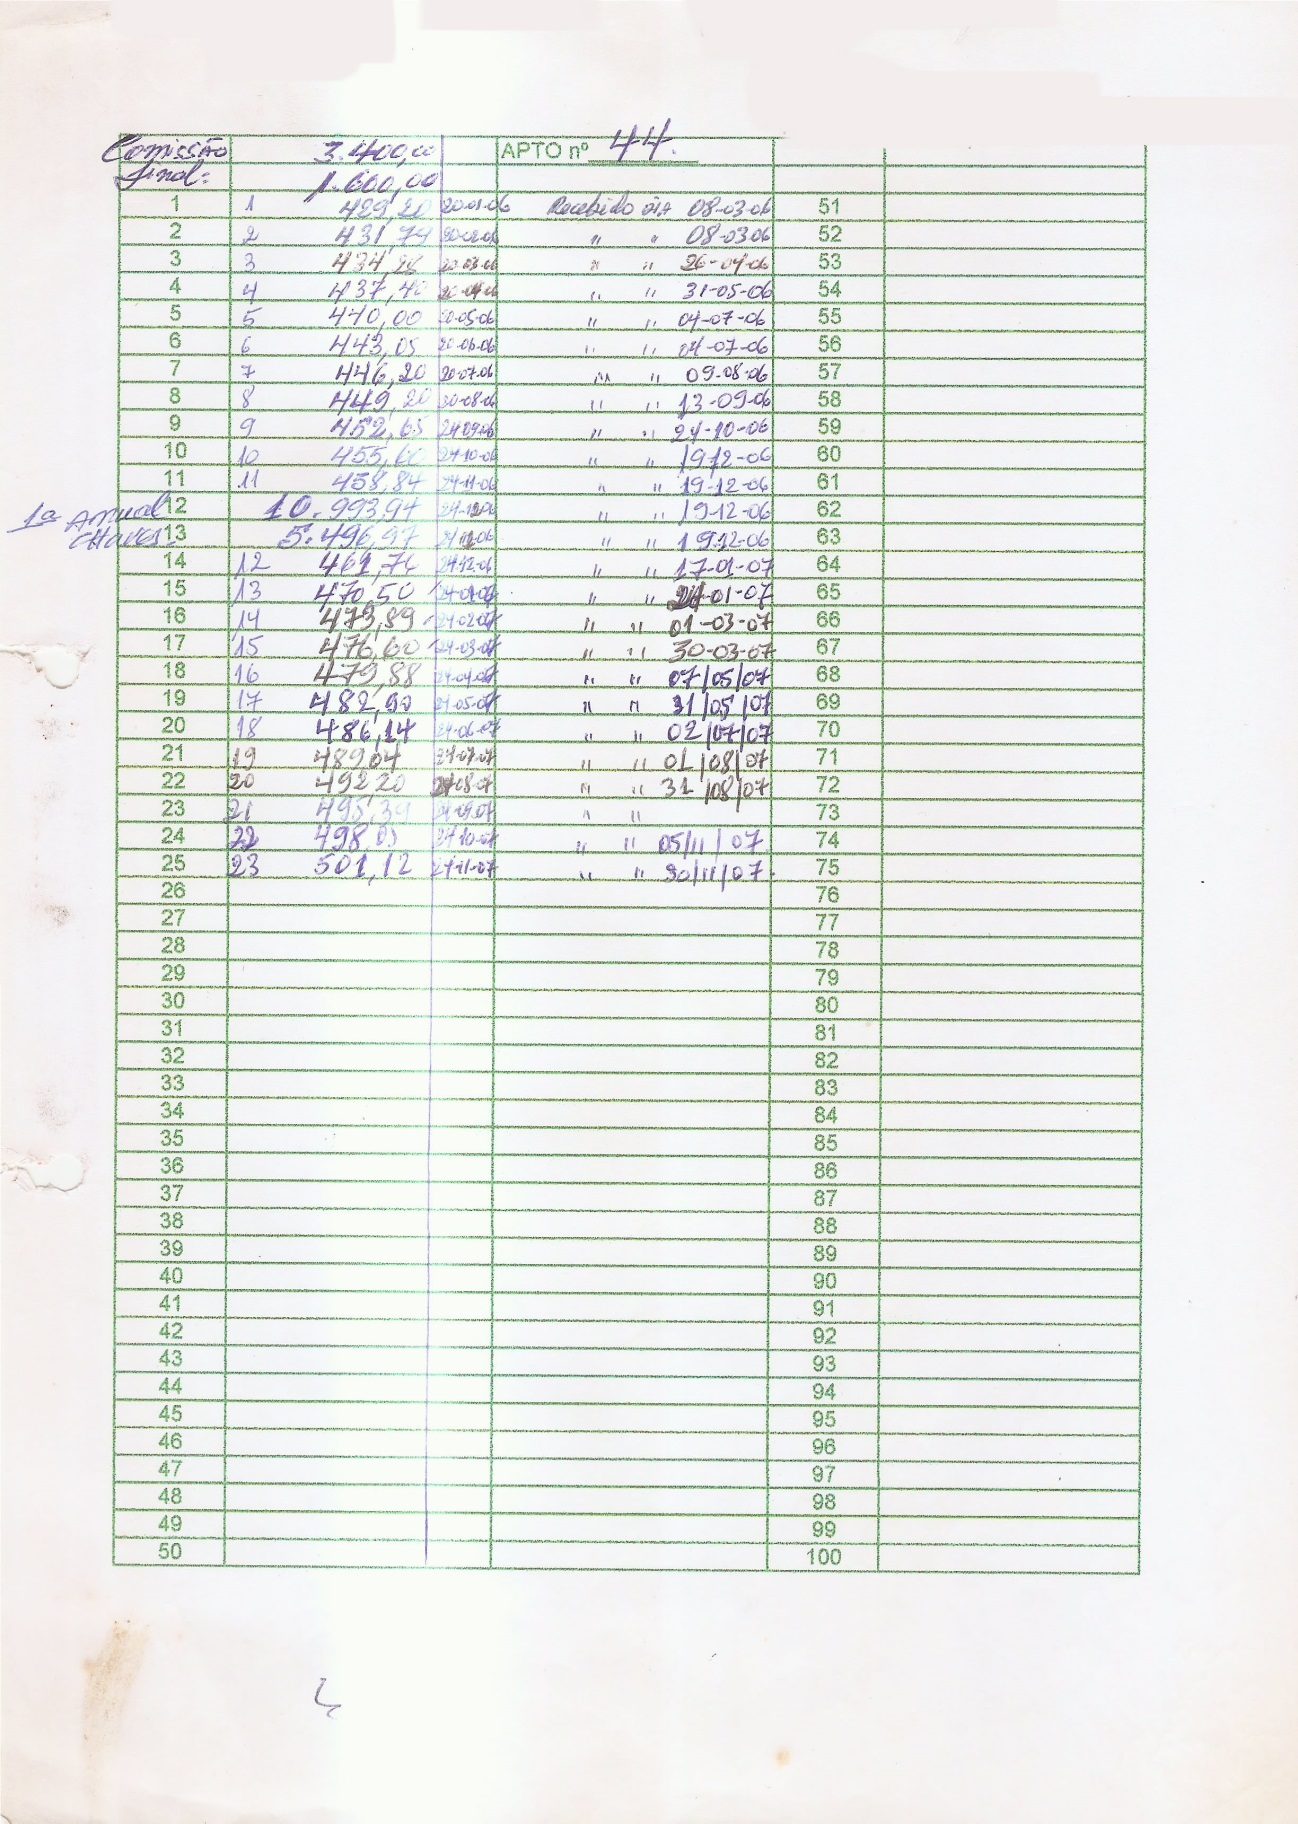 Comissão 3.400,00 APTO nº 44.
final: 1.600,00
1 1 429,20 20-01-06 Recebido dia 08-03-06 51
2 2 431,74 20-02-06 " " 08-03-06 52
3 3 20-03-06 " " 26-04-06 53
4 4 437,40 20-04-06 " " 31-05-06 54
5 5 440,00 20-05-06 " " 04-07-06 55
6 6 443,05 20-06-06 " " 04-07-06 56
7 7 446,20 20-07-06 " " 09-08-06 57
8 8 449,20 20-08-06 " " 13-09-06 58
9 9 452,65 24-09-06 " " 24-10-06 59
10 10 455,60 24-10-06 " " 19-12-06 60
11 11 458,84 24-11-06 " " 19-12-06 61
1ª Anual 12 10.993,94 " " 19-12-06 62
chaves: 13 5.496,97 " " 19-12-06 63
14 12 461,76 24-12-06 " " 17-01-07 64
15 13 470,50 24-01-07 " " -01-07 65
16 14 473,89 24-02-07 " " 01-03-07 66
17 15 476,60 24-03-07 " " 30-03-07 67
18 16 479,88 24-04-07 " " 07/05/07 68
19 17 482,90 24-05-07 " " 31/05/07 69
20 18 486,14 24-06-07 " " 02/07/07 70
21 19 489,04 24-07-07 " " 01/08/07 71
22 20 492,20 24-08-07 " " 31/08/07 72
23 21 495,39 24-09-07 " " 73
24 22 24-10-07 " " 05/11/07 74
25 23 501,12 24-11-07 " " 30/11/07. 75
26 76
27 77
28 78
29 79
30 80
31 81
32 82
33 83
34 84
35 85
36 86
37 87
38 88
39 89
40 90
41 91
42 92
43 93
44 94
45 95
46 96
47 97
48 98
49 99
50 100